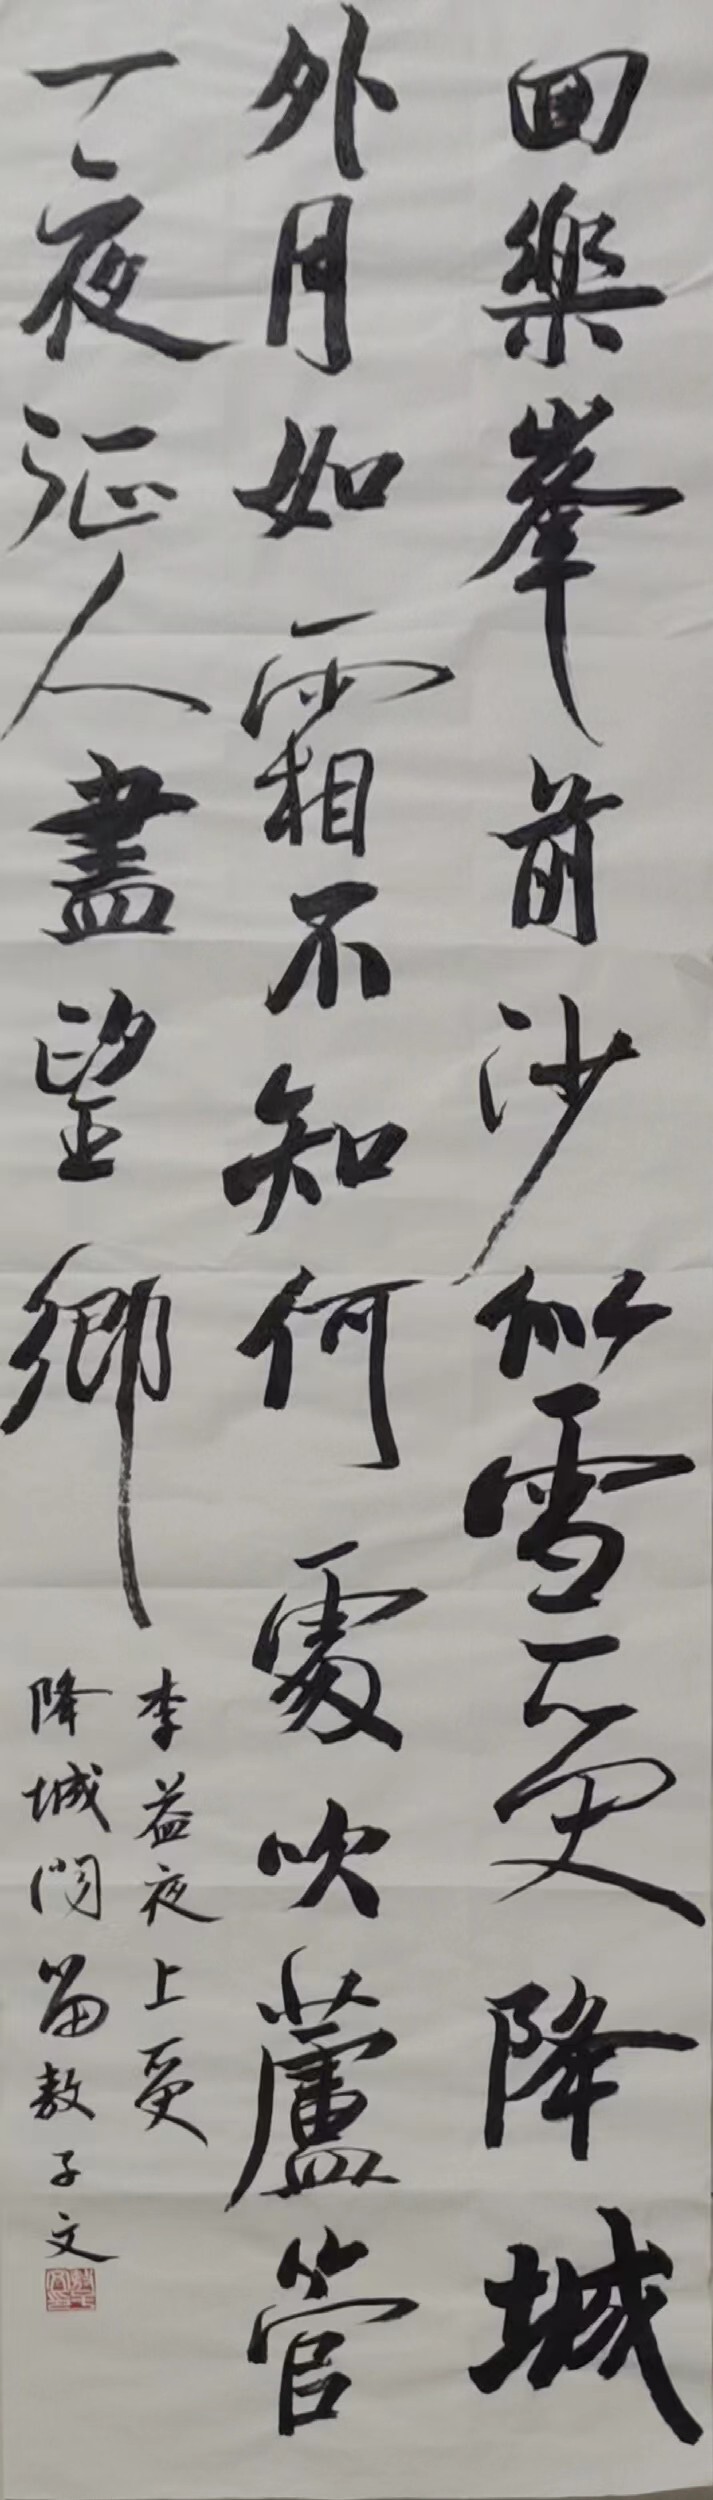 回樂峯前沙似雪受降城
外月如霜不知何處吹蘆管
一夜征人盡望鄉
李益夜上受
降城聞笛敖子文